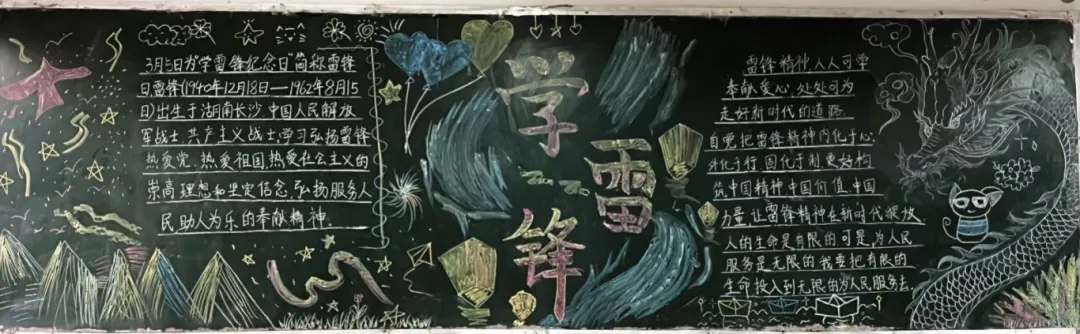 3月5日为学雷锋纪念日简称雷锋
日雷锋(1940年12月18日—1962年8月15
日)出生于湖南长沙 中国人民解放
军战士 共产主义战士学习弘扬雷锋
热爱党、热爱祖国热爱社会主义的
崇高理想和坚定信念 弘扬服务人
民助人为乐的奉献精神
学
雷
锋
雷锋精神人人可学
奉献爱心 处处可为
走好新时代的道路
自觉把雷锋精神内化于心
外化于行 固化于制 更好构
筑中国精神中国价值中国
力量 让雷锋精神在新时代绽放
人的生命是有限的可是为人民
服务是无限的我要把有限的
生命投入到无限的为人民服务去